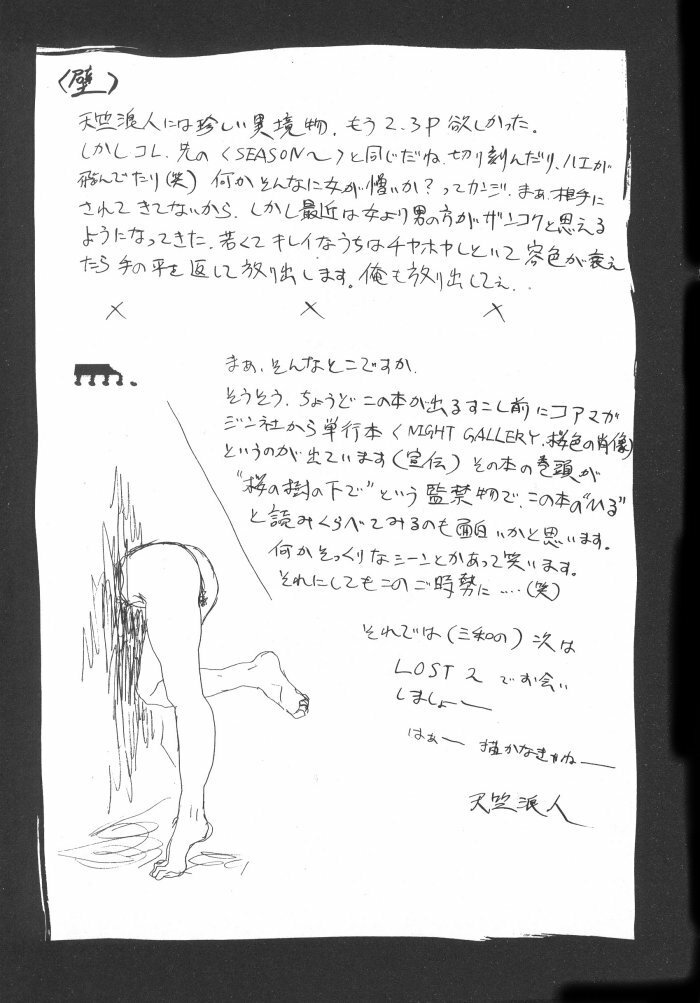 〈壁〉
天竺浪人には珍しい異境物、もう2、3P欲しかった。
しかしコレ、先の〈SEASON〜〉と同じだね、切り刻んだり、ハエが
飛んでたり(笑)何かそんなに女が憎いか?ってカンジ、まぁ、相手に
されてきてないから、しかし最近は女より男の方がザンコクと思える
ようになってきた、若くてキレイなうちはチヤホヤしといて容色が衰え
たら手の平を返して放り出します。俺も放り出してぇ、、
× × ×
まぁ、そんなとこですか、
そうそう、ちょうどこの本が出るすこし前にコアマガ
ジン社から単行本〈NIGHT GALLERY、桜色の肖像〉
というのが出ています(宣伝)その本の巻頭が
"桜の樹の下で"という監禁物で、この本の"いる"
と読みくらべてみるのも面白いかと思います。
何かそっくりなシーンとかあって笑います。
それにしてもこのご時勢に‥‥(笑)
それでは(三和の)次は
LOST 2 でお会い
しましょー
はぁー 描かなきゃねー
天竺浪人